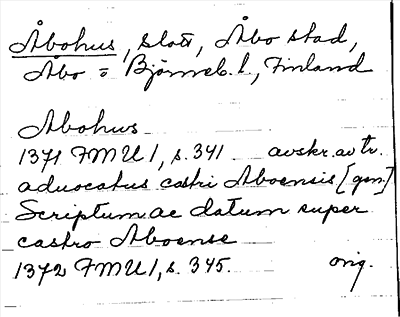 Åbohus, slott, Åbo stad,
Åbo o Björneb. l., Finland
Åbohus
1371 FMU 1, s. 341 avskr. av tr.
aduocatus castri Aboensis [gen.]
Scriptum ac datum super
castro Aboense
1372 FMU 1, s. 345. orig.